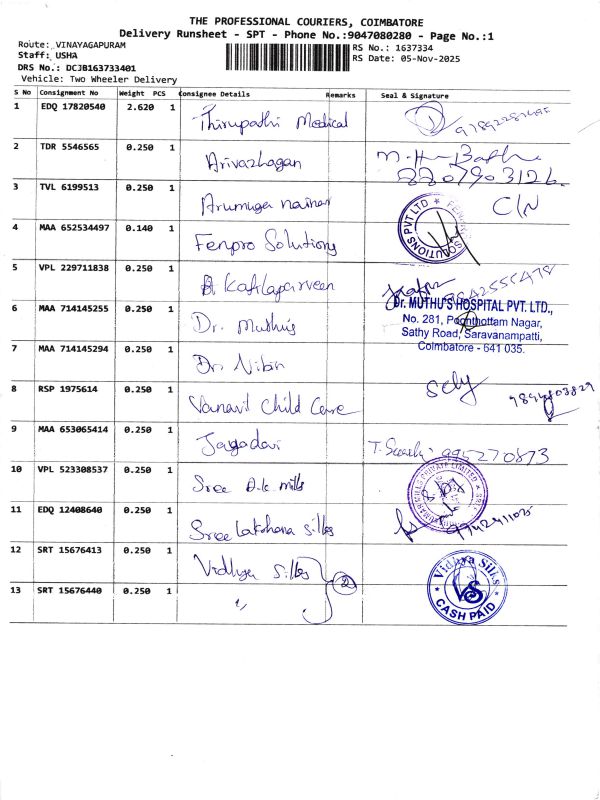 THE PROFESSIONAL COURIERS, COIMBATORE
Delivery Runsheet - SPT - Phone No.:9047080280 - Page No.:1
Route: VINAYAGAPURAM
Staff: USHA
DRS No.: DCJB163733401
Vehicle: Two Wheeler Delivery
RS No.: 1637334
RS Date: 05-Nov-2025
S No Consignment No Weight PCS Consignee Details Remarks Seal & Signature
1 EDQ 17820540 2.620 1 Thirupathi Medical
2 TDR 5546565 0.250 1 Arivazhagan
8807903126
3 TVL 6199513 0.250 1 Arumuga nainar C/N
4 MAA 652534497 0.140 1 Fenpro Solutions
5 VPL 229711838 0.250 1 Kafilaparveen
6 MAA 714145255 0.250 1 Dr. Muthus
Dr. MUTHU'S HOSPITAL PVT. LTD.,
No. 281, Poonthottam Nagar,
Sathy Road, Saravanampatti,
Coimbatore - 641 035.
7 MAA 714145294 0.250 1 Dr. Nibin
8 RSP 1975614 0.250 1 Vanavil Child Care
9 MAA 653065414 0.250 1 Jagadavi
10 VPL 523308537 0.250 1 Sree A.k mills
11 EDQ 12408640 0.250 1 Sree Lakshana Silks
12 SRT 15676413 0.250 1 Vidhya Silks 2
13 SRT 15676440 0.250 1 "
Vidhya Silks
VS
CASH PAID